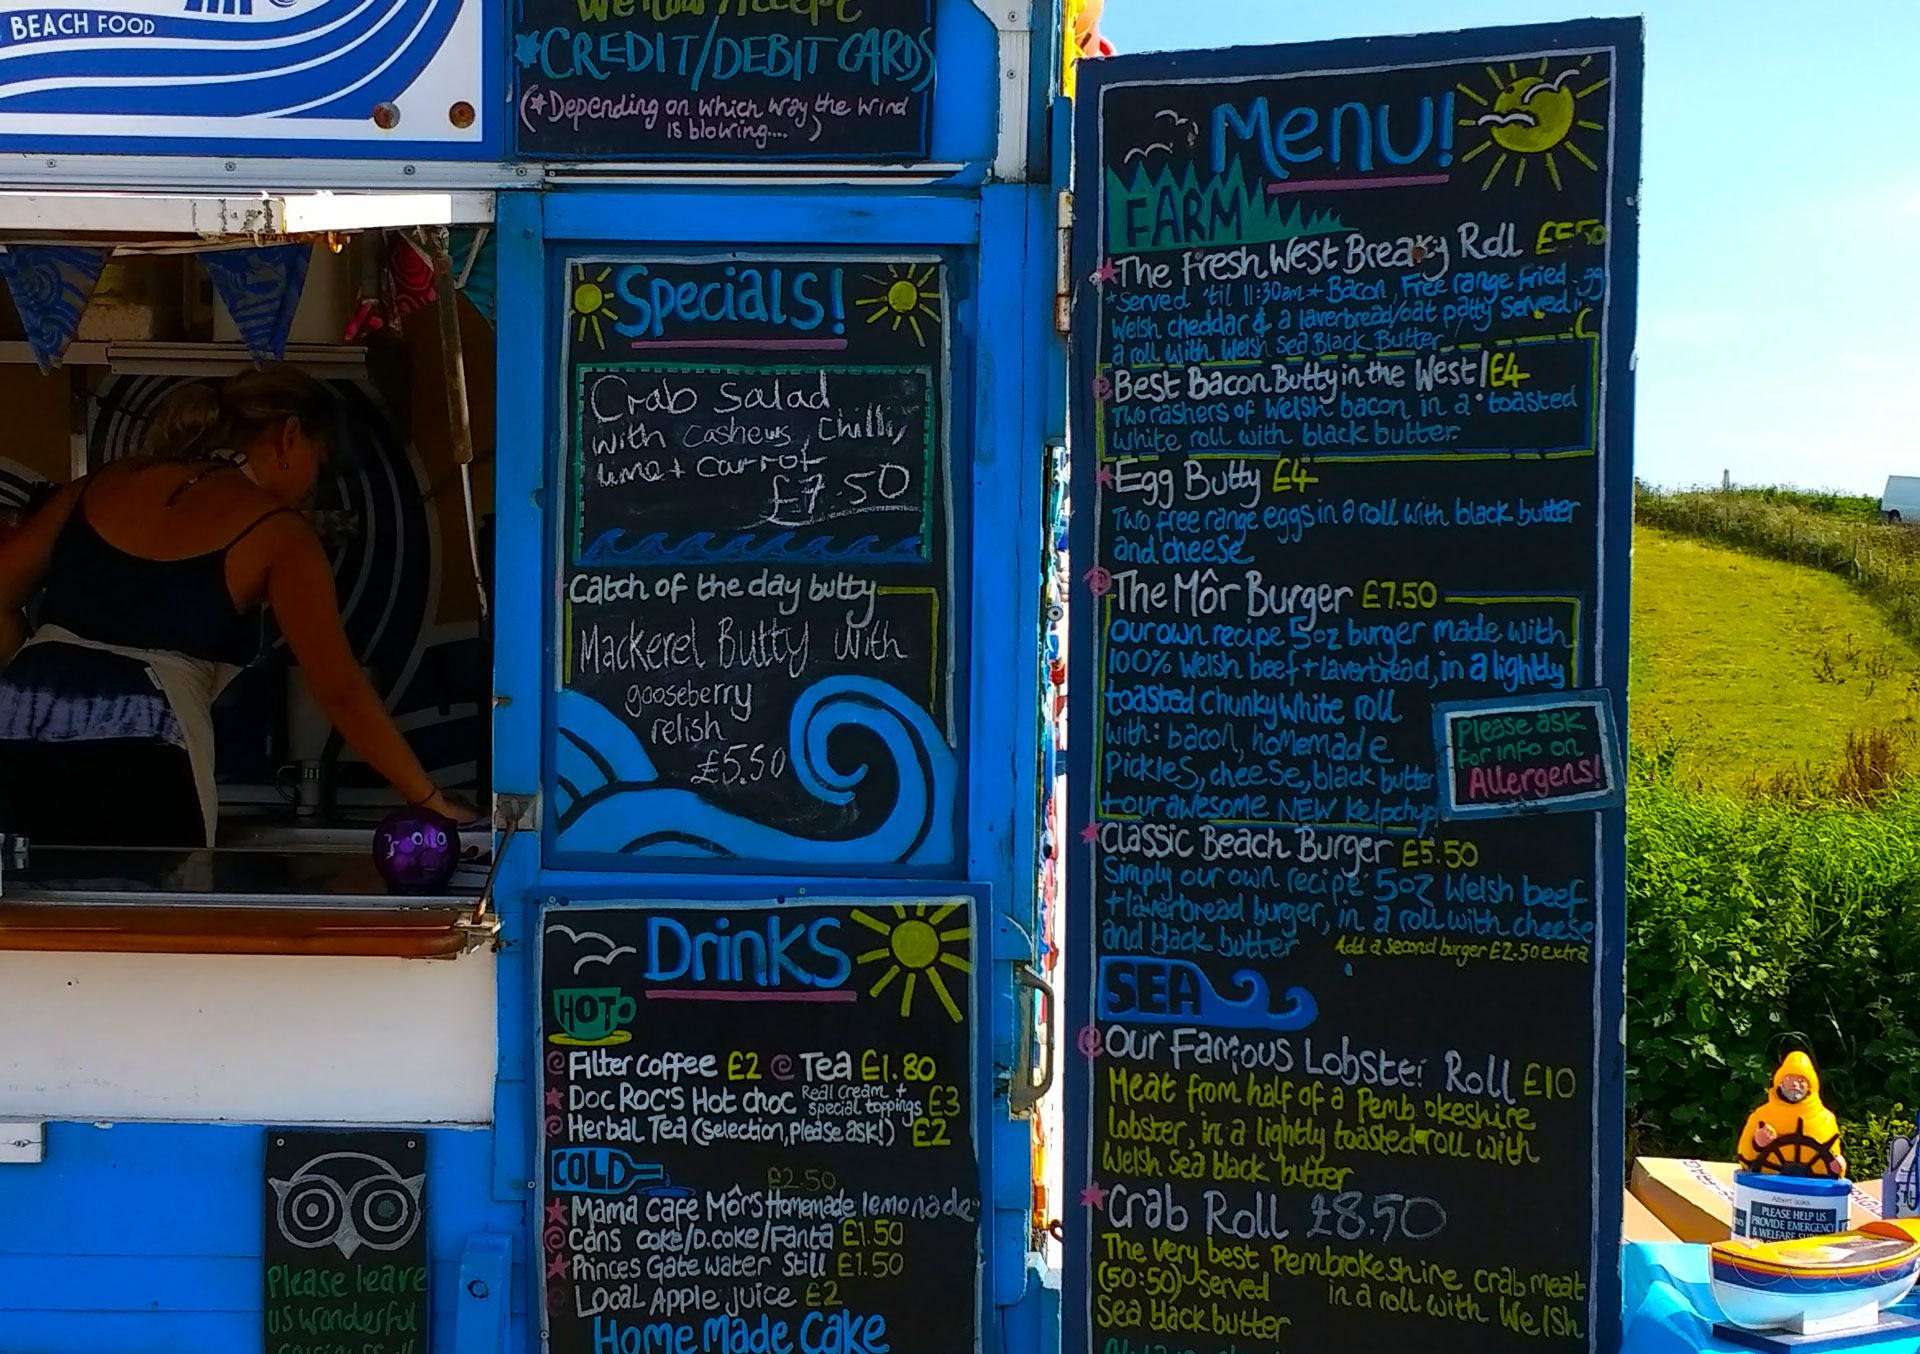 BEACH FOOD
We now Accept
CREDIT/DEBIT CARDS
(*Depending on which way the wind
is blowing....)
Specials!
Crab Salad
with cashews, chilli,
lime + carrot
£7.50
Catch of the day butty
Mackerel Butty with
gooseberry
relish
£5.50
Drinks
HOT
Filter coffee £2 Tea £1.80
Doc Roc's Hot choc Real cream +
special toppings £3
Herbal Tea (selection, please ask!) £2
COLD
£2.50
Mama Cafe Môr's Homemade lemonade
Cans coke/D.coke/Fanta £1.50
Princes Gate water Still £1.50
Local Apple juice £2
Home Made Cake
Please leave
us wonderful
Menu!
FARM
The Fresh West Breaky Roll £5.50
*Served 'til 11:30am* Bacon, Free range fried
Welsh cheddar & a laverbread/oat patty served in
a roll with Welsh Sea Black Butter
Best Bacon Butty in the West! £4
Two rashers of Welsh bacon in a toasted
white roll with black butter.
Egg Butty £4
Two free range eggs in a roll with black butter
and cheese
The Môr Burger £7.50
Our own recipe 5oz burger made with
100% Welsh beef + laverbread, in a lightly
toasted chunky white roll
with: bacon, homemade
Pickles, cheese, black butter
+ our awesome NEW Kelpchup
Please ask
for info on
Allergens!
Classic Beach Burger £5.50
Simply our own recipe 5oz Welsh beef
+ laverbread burger, in a roll with cheese
and black butter Add a second burger £2.50 extra
SEA
Our Famous Lobster Roll £10
Meat from half of a Pembrokeshire
lobster, in a lightly toasted roll with
Welsh Sea black butter
Crab Roll £8.50
The very best Pembrokeshire crab meat
(50:50) served in a roll with Welsh
Sea black butter
PLEASE HELP US
PROVIDE EMERGENCY
& WELFARE